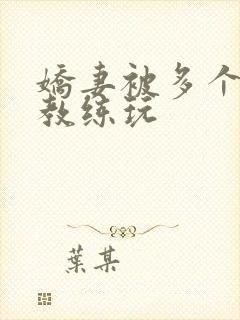 嬌妻被多个
教练玩
葉某